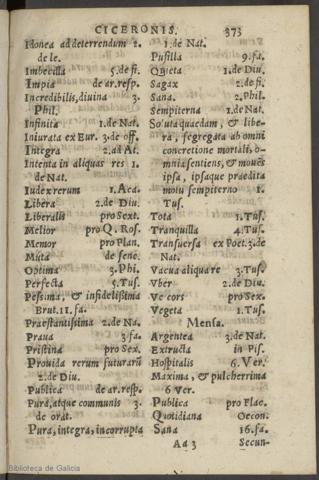 CICERONIS. 373
Idonea ad deterrendum 2.
de le.
Imbecilla 5.de fi.
Impia de ar.resp.
Incredibilis, diuina 3.
Phil.
Infinita 1.de Nat.
Iniurata ex Eur. 3.de off.
Integra 2.ad At.
Intenta in aliquas res 1.
de Nat.
Iudex rerum 1.Aca.
Libera 2.de Diu.
Liberalis pro Sext.
Melior pro Q. Ros.
Memor pro Plan.
Muta de senec.
Optima 3.Phi.
Perfecta 5.Tus.
Pessima, & infidelißima
Brut.11.fa.
Praestantissima 2.de Na.
Praua 3 fa.
Pristina pro Sex.
Prouida rerum futurarũ
2.de Diu.
Publica de ar.resp.
Pura, atque communis 3.
de orat.
Pura, integra, incorrupta
1.de Nat.
Pusilla 9.fa.
Quieta 1.de Diu.
Sagax 2.de fi.
Sana. 2.Phil.
Sempiterna 1.de Nat.
Soluta quaedam, & libe-
ra, segregata ab omni
concretione mortali, o-
mnia sentiens, & mouẽs
ipsa, ipsaque praedita
motu sempiterno 1.
Tus.
Tota 1.Tus.
Tranquilla 4.Tus.
Transuersa ex Poet.3.de
Nat.
Vacua aliqua re 3.Tus.
Vber 2.de Diu.
Vecors pro Sex.
Vegeta 1.Tus.
Mensa.
Argentea 3.de Nat.
Extructa in Pis.
Hospitalis 6.Ver.
Maxima, & pulcherrima
6 Ver.
Publica pro Flac.
Quotidiana Oecon.
Sana 16.fa.
Aa 3 Secun-
Biblioteca de Galicia